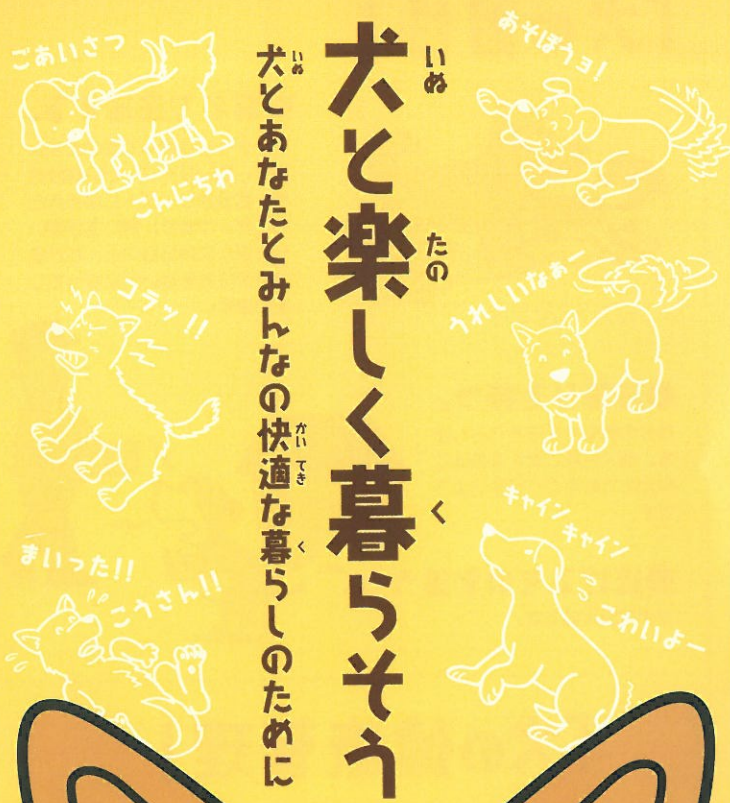 犬と楽しく暮らそう
いぬ
たの
く
犬とあなたとみんなの快適な暮らしのために
いぬ
かい てき
く
あそぼうョ!
うれしいなぁー
キャインキャイン
こわいよー
ごあいさつ
こんにちわ
コラッ!!
まいった!!
こうさん!!